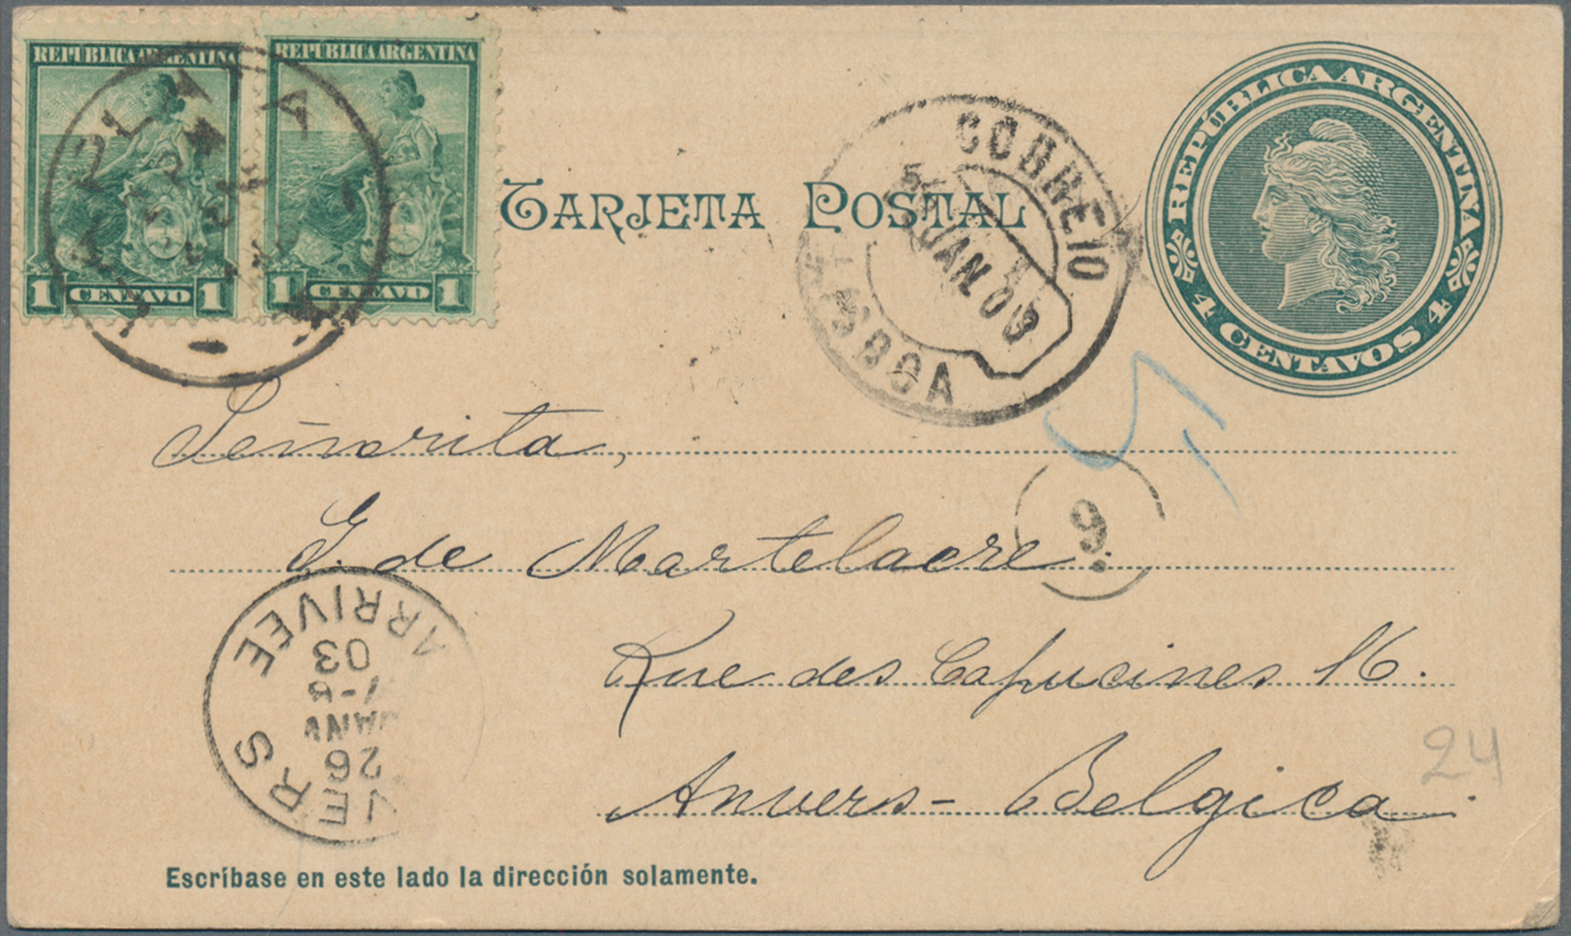 REPUBLICA ARGENTINA
1 CENTAVO 1
REPUBLICA ARGENTINA
1 CENTAVO 1
TARJETA POSTAL
CORREIO
JAN
LISBOA
REPÚBLICA ARGENTINA
4 CENTAVOS 4
Señorita,
9.
G. de Martelaere.
Rue des Capucines 16.
Anvers - Belgica.
24
ARRIVÉE
03
7-8
JANV
26
VERS
Escríbase en este lado la dirección solamente.